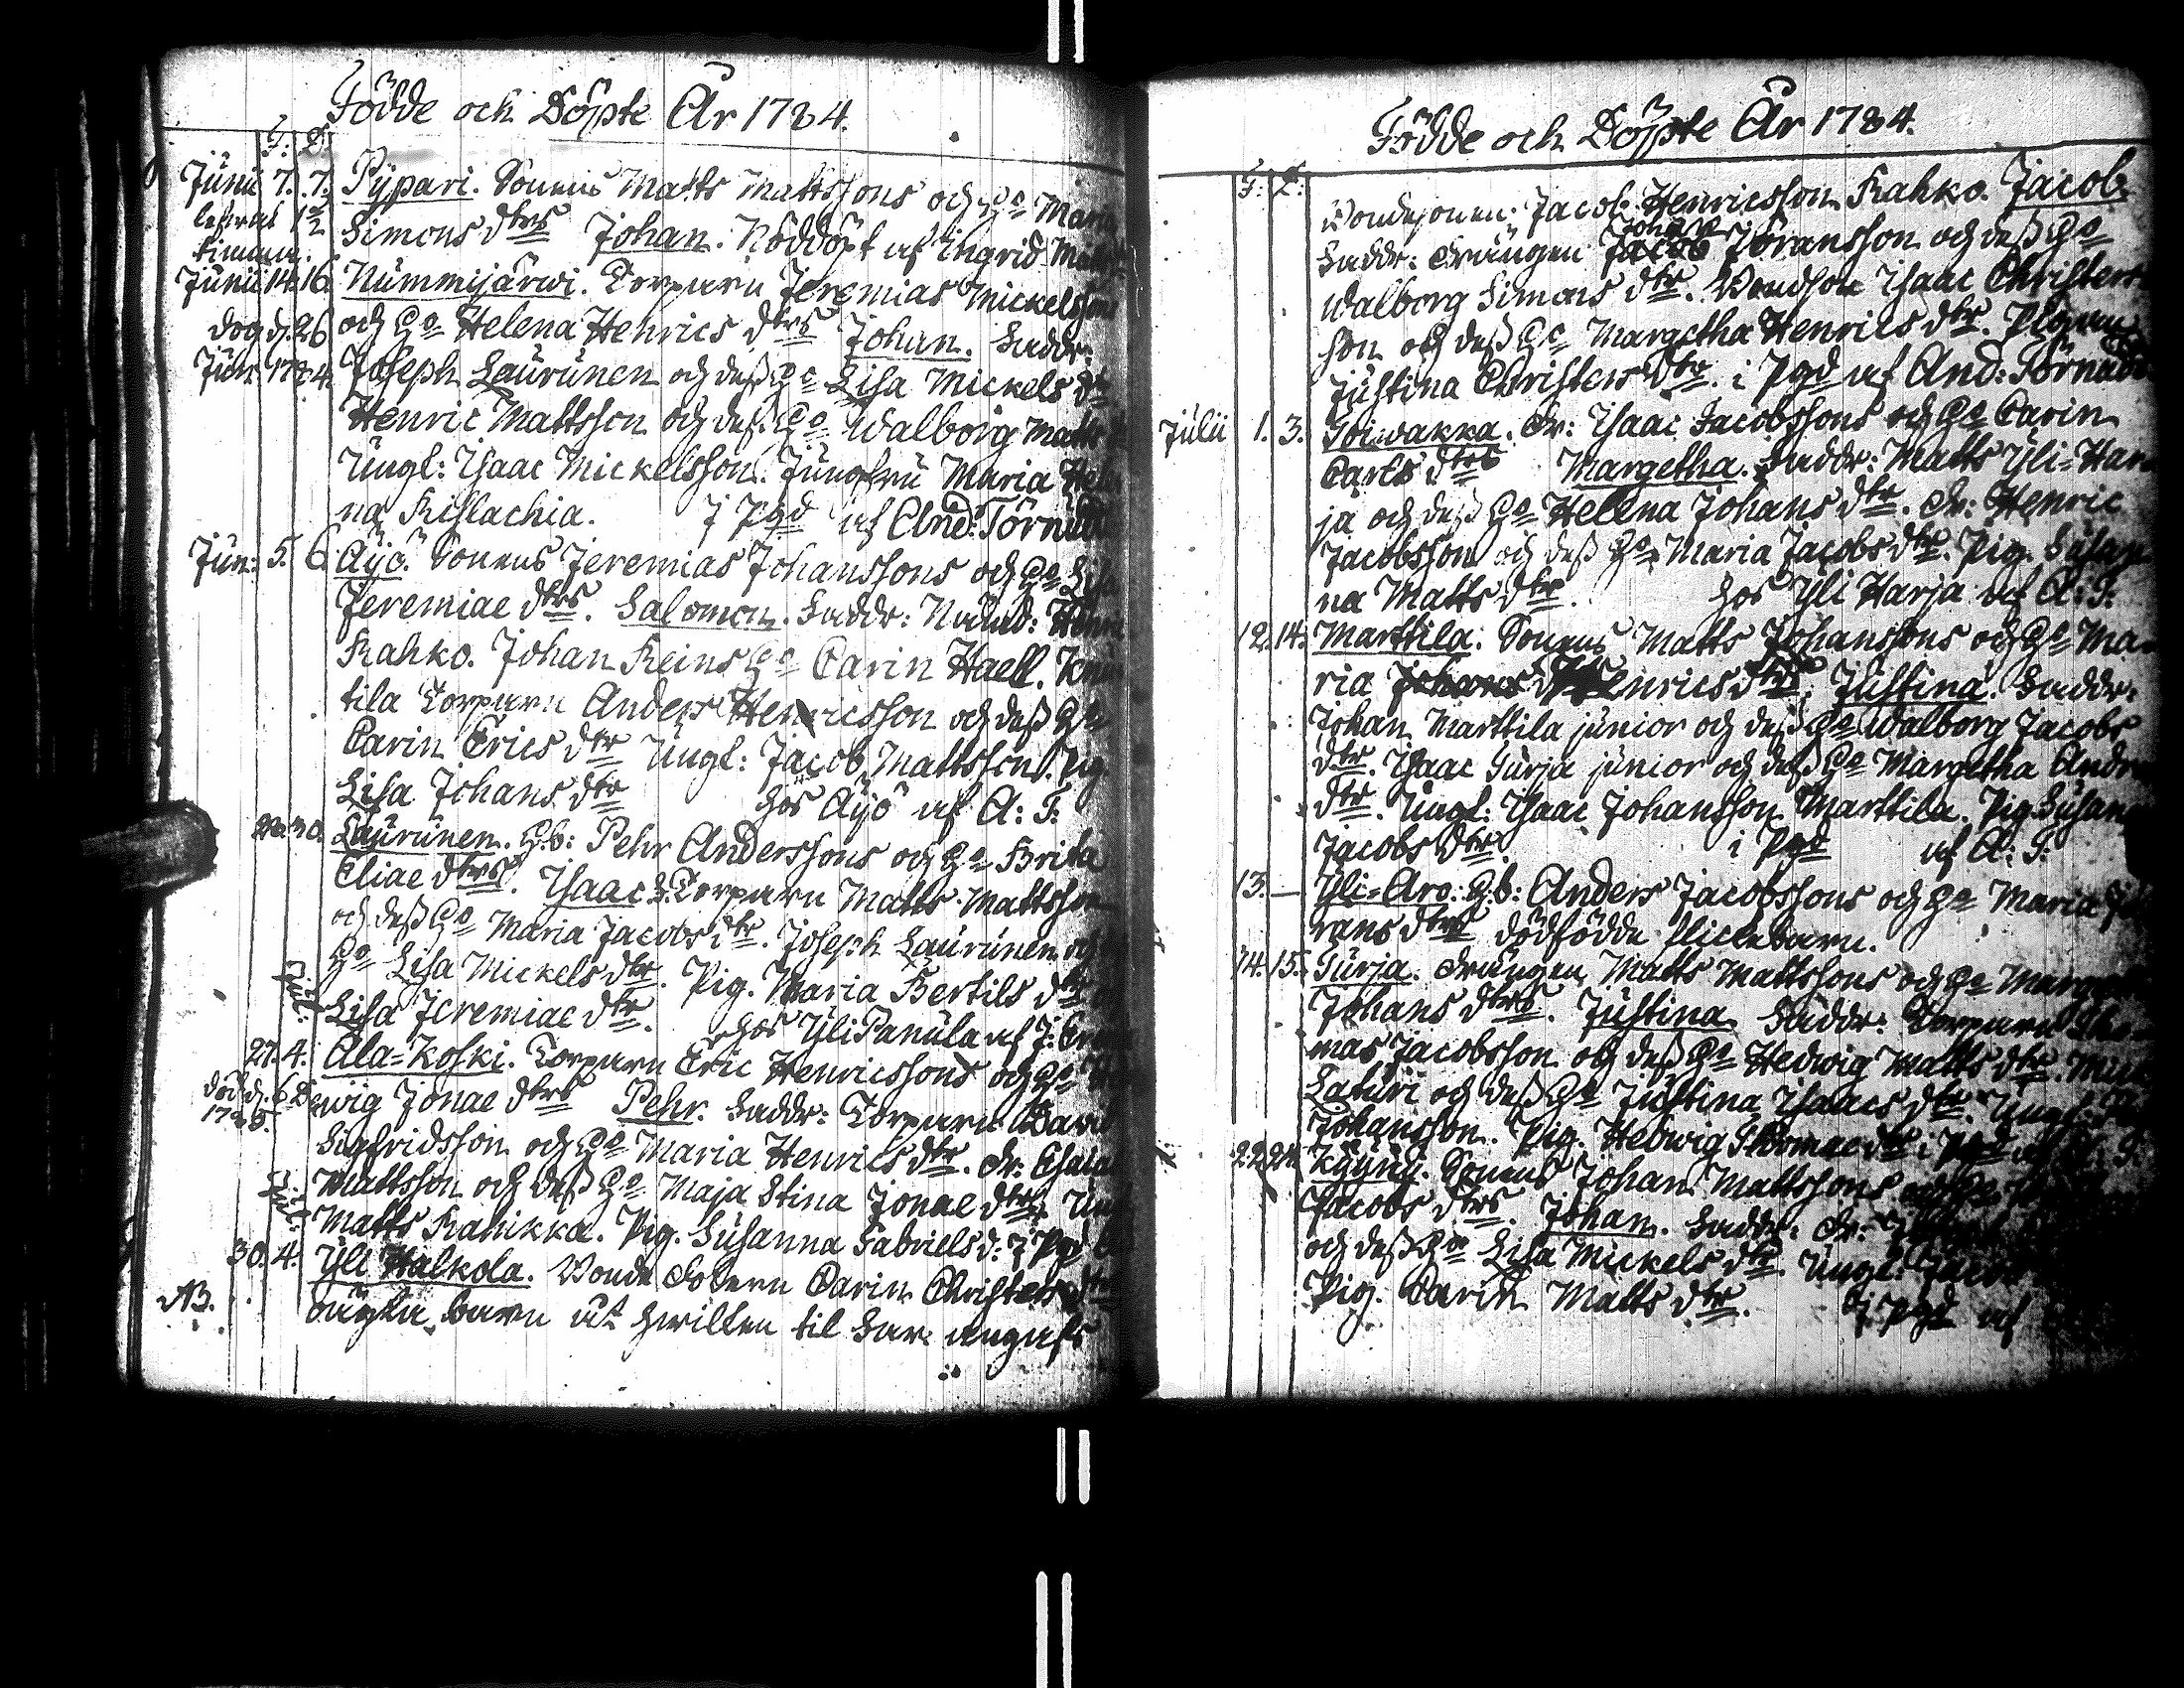 Födde och Döpte År 1784.
F: D:
Junii 7. 7. Pypari. Sonens Matts Mattssons och Ho Maria
lefvat 1/2 Simons dtrs Johan. Nöddöpt af Ingrid
timma.
Junii 14. 16. Nummijärwi. Torparn Jeremias Mickelssons
dog d. 26 och Ho Helena Henrics dtrs Johan. Faddr:
Jun. 1784. Joseph Laurunen och dess Ho Lisa Mickels dtr
Henric Mattsson och dess Ho Walborg Matts
Ungl: Isaac Mickelsson. Jungfru Maria
na Kislachia. J Pgd af And: Törnudd
Jun: 5. 6. Äyö. Sonens Jeremias Johanssons och Ho Lisa
Jeremiae dtrs. Salomon. Faddr: Nämd:
Kahko. Johan Keins Ho Carin Haell.
tila Torparn Anders Henricsson och dess Ho
Carin Erics dtr Ungl: Jacob Mattsson. Pig.
Lisa Johans dtr hos Äyö af A: T:
30. Laurunen. H.b: Pehr Anderssons och Ho Brita
Eliae dtrs. Isaac F. Torparn Matts Mattsson
och dess Ho Maria Jacobs dtr. Joseph Laurunen och
Ho Lisa Mickels dtr. Pig. Maria Bertils dtr
Jul: Lisa Jeremiae dtr. hos Yli Panula af J:
27. 4. Ala-Koski. Torparn Eric Henricssons och Ho
död d. 6 wig Jonae dtrs Pehr. Faddr: Torparn
Sigfridsson och Ho Maria Henrics dtr. Dr: Esaias
Mattsson och dess Ho Maja Stina Jonae dtr.
Jul: Matts Kahikka. Pig. Susanna Gabriels d: J Pgd
30. 4. Yli Walkola. Bonde dottern Carin Christers dtr
NB. oägta barn
Födde och Döpte År 1784.
F: D:
Bondesonen: Jacob Henricsson Kahko. Jacob
Johan
Faddr: Drängen Jacob Jöransson och dess Ho
Walborg Simons dtr. Bondson Isaac Christers
son och dess Ho Margetha Henrics dtr. Pigan
Justina Christers dtr. i Pgd af And: Törnudd
Julii 1. 3. Koiwakka. Dr: Isaac Jacobssons och Ho Carin
Carls dtrs Margetha. Faddr: Matts Yli-Har
ja och dess Ho Helena Johans dtr. Dr: Henric
Jacobsson och dess Ho Maria Jacobs dtr. Pig. Susan
na Matts dtr. hos Yli Harja af A: T:
12. 14. Marttila. Sonens Matts Johanssons och Ho Ma
ria Johans dtrs Henrics dtrs. Justina. Faddr:
Johan Marttila junior och dess Ho Walborg Jacobs
dtr. Isaac Turja junior och dess Ho Margetha
dtr. Ungl: Isaac Johansson Marttila. Pig. Susan
Jacobs dtr. i Pgd af A: T:
13. — Yli-Aro: H.b: Anders Jacobssons och Ho Maria
rans dtrs dödfödde flickebarn.
14. 15. Turja. Drängen Matts Mattssons och Ho
Johans dtrs. Justina Faddr: Torparn Tho
mas Jacobsson och dess Ho Hedwig Matts dtr.
Laturi och dess Ho Justina Isaacs dtr. Ungl:
Johansson. Pig. Hedwig Thomae dtr i Pgd af A: T:
22. 24. Kyyny. Sonens Johan Mattssons och Ho
Jacobs dtrs. Johan. Faddr: Dr:
och dess Ho Lisa Mickels dtr. Ungl: Jacob
Pig. Carin Matts dtr. J Pgd af